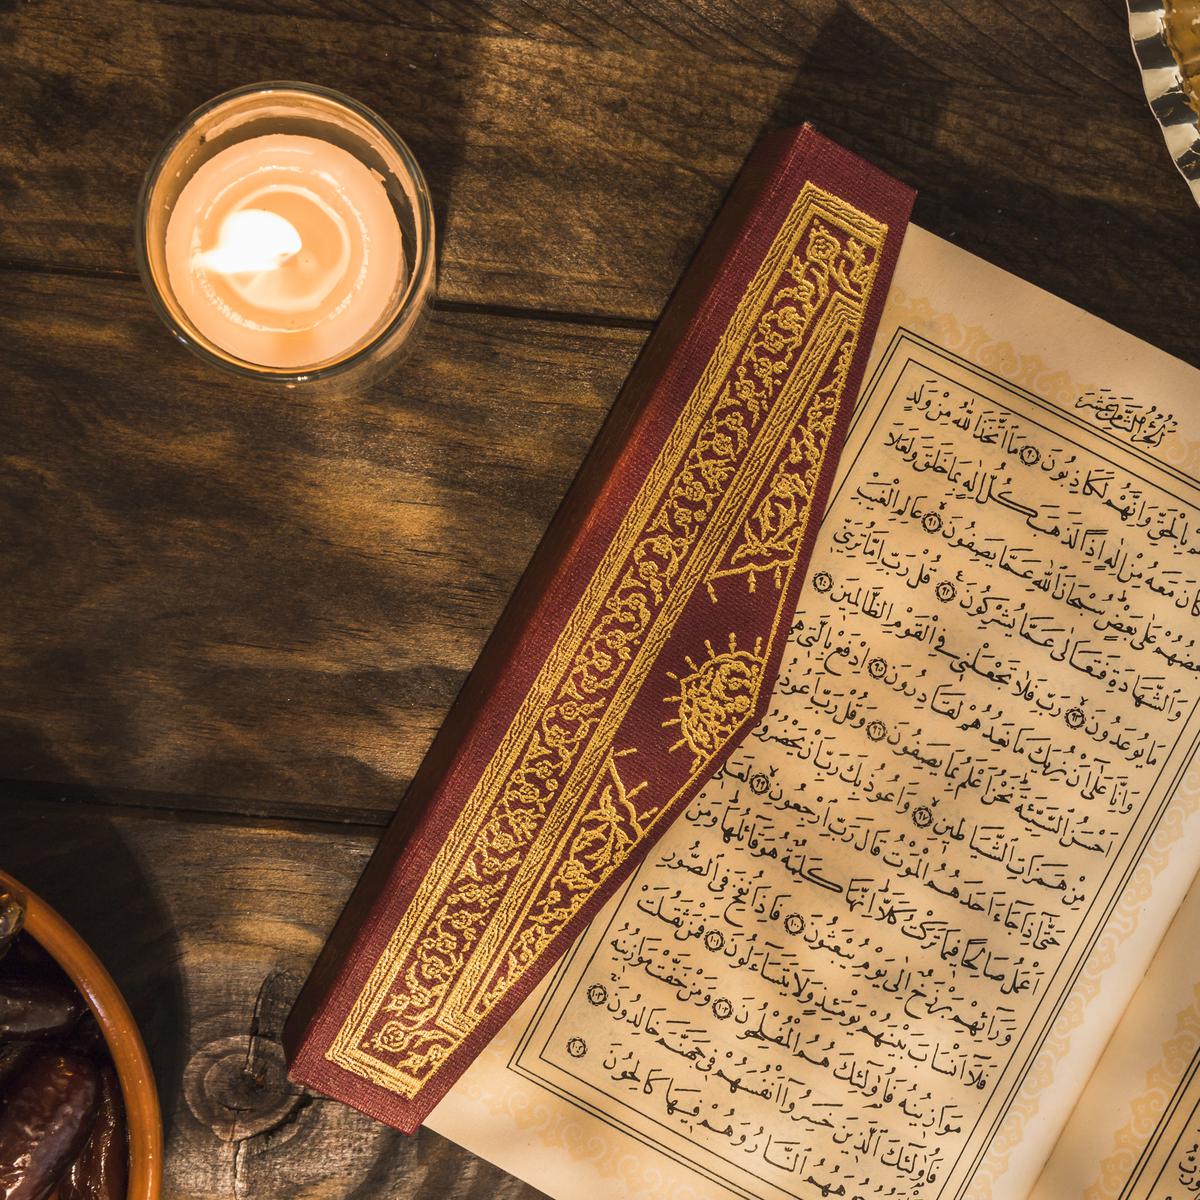 الجُزْءُ الثَّامِنَ عَشَرَ
بِالْحَقِّ وَاِنَّهُمْ لَكَاذِبُونَ ٩٠ مَا اتَّخَذَ اللّٰهُ مِنْ وَلَدٍ
كَانَ مَعَهُ مِنْ اِلٰهٍ اِذًا لَذَهَبَ كُلُّ اِلٰهٍ بِمَا خَلَقَ وَلَعَلَا
بَعْضُهُمْ عَلٰى بَعْضٍ سُبْحَانَ اللّٰهِ عَمَّا يَصِفُونَ ٩١ عَالِمِ الْغَيْبِ
وَالشَّهَادَةِ فَتَعَالٰى عَمَّا يُشْرِكُونَ ٩٢ قُلْ رَبِّ اِمَّا تُرِيَنِّي
مَا يُوعَدُونَ ٩٣ رَبِّ فَلَا تَجْعَلْنِي فِي الْقَوْمِ الظَّالِمِينَ ٩٤
وَاِنَّا عَلٰى اَنْ نُرِيَكَ مَا نَعِدُهُمْ لَقَادِرُونَ ٩٥ اِدْفَعْ بِالَّتِي هِيَ
اَحْسَنُ السَّيِّئَةَ نَحْنُ اَعْلَمُ بِمَا يَصِفُونَ ٩٦ وَقُلْ رَبِّ اَعُوذُ
مِنْ هَمَزَاتِ الشَّيَاطِينِ ٩٧ وَاَعُوذُ بِكَ رَبِّ اَنْ يَحْضُرُونِ
حَتّٰى اِذَا جَاءَ اَحَدَهُمُ الْمَوْتُ قَالَ رَبِّ ارْجِعُونِ ٩٩ لَعَلِّي
اَعْمَلُ صَالِحًا فِيمَا تَرَكْتُ كَلَّا اِنَّهَا كَلِمَةٌ هُوَ قَائِلُهَا وَمِنْ
وَرَائِهِمْ بَرْزَخٌ اِلٰى يَوْمِ يُبْعَثُونَ ١٠٠ فَاِذَا نُفِخَ فِي الصُّورِ
فَلَا اَنْسَابَ بَيْنَهُمْ يَوْمَئِذٍ وَلَا يَتَسَاءَلُونَ ١٠١ فَمَنْ ثَقُلَتْ
مَوَازِينُهُ فَاُولٰئِكَ هُمُ الْمُفْلِحُونَ ١٠٢ وَمَنْ خَفَّتْ مَوَازِينُهُ
فَاُولٰئِكَ الَّذِينَ خَسِرُوا اَنْفُسَهُمْ فِي جَهَنَّمَ خَالِدُونَ ١٠٣
النَّارُ وَهُمْ فِيهَا كَالِحُونَ ١٠٤